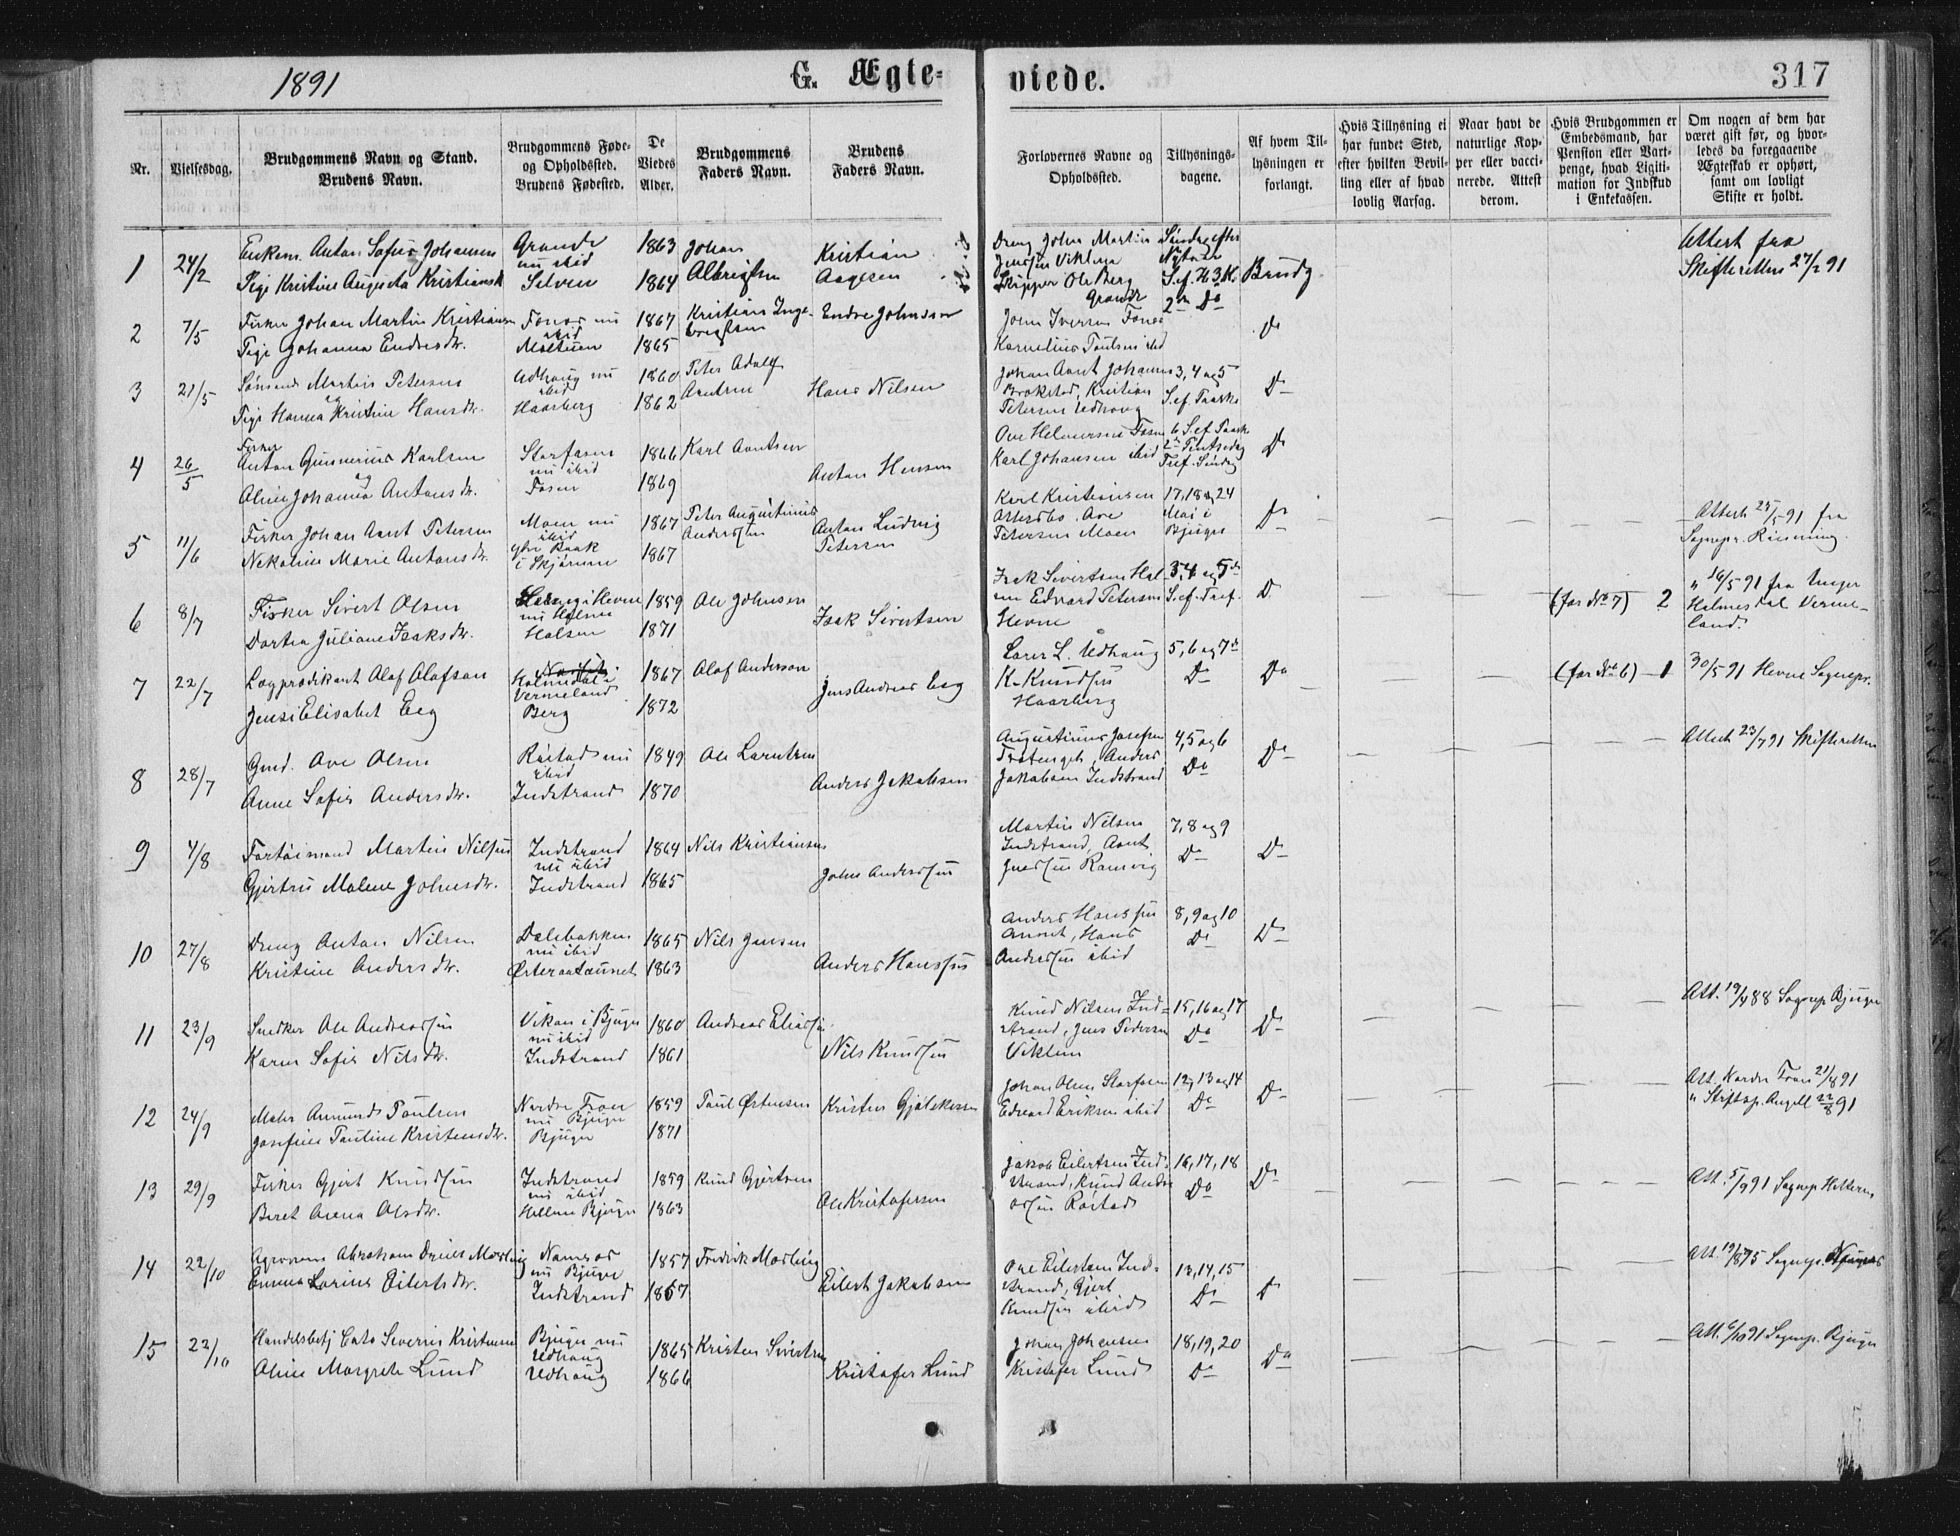 1891
G. Ægte-
viede.
317
Nr.
Vielsesdag.
Brudgommens Navn og Stand.
Brudens Navn.
Brudgommens Føde-
og Opholdssted.
Brudens Fødested.
De
Viedes
Alder.
Brudgommens
Faders Navn.
Brudens
Faders Navn.
Forlovernes Navne og
Opholdssted.
Tillysnings-
dagene.
Af hvem Til-
lysningen er
forlangt.
Hvis Tillysning ei
har fundet Sted,
efter hvilken Bevil-
ling eller af hvad
lovlig Aarsag.
Naar havt de
naturlige Kop-
per eller vacci-
nerede. Attest
derom.
Hvis Brudgommen er
Embedsmand, har
Pension eller Vart-
penge, hvad Ligiti-
mation for Indskud
i Enkekassen.
Om nogen af dem har
været gift før, og hvor-
ledes da foregaaende
Ægteskab er ophørt,
samt om lovligt
Skifte er holdt.
1
24/2
Enkem. Anton Sofus Johansen
Pige Kristine Augusta Kristiansd
Grande
nu ibid
Selven
1863
1864
Johan
Albrigtsen
Kristian
Aagesen
Dreng John Martin
Jenssen Viklem
Skipper Ole Berg
Grande
Søndag efter
Nytaar
S. ef. H3K.
2den Do
Brudg
Attest fra
Skifteretten 27/2 91
2
7/5
Fisker Johan Martin Kristiansen
Pige Johanna Endresdr.
nu
ibid
1867
1865
Kristian Inge-
brigtsen
Endre Johnsen
John Iversen
Kornelius Paulsen ibid
Do
3
21/5
Martin Petersen
Pige Hanna Kristine Hansdr.
Udhaug nu
ibid
Haarberg
1860
1862
Peter Adolf
Arntsen
Hans Nilsen
Johan Arnt Johansen
Brekstad, Kristian
Petersen Udhaug
3, 4 og 5
S. ef. Paaske
Do
4
26/5
Fisker
Anton Gunnerius Karlsen
Aline Johanna Antonsdr.
Storfosen
nu ibid
Fosen
1866
1869
Karl Arntsen
Anton Hensen
Ove Helmersen Fosen
Karl Johansen ibid
6 S. ef. Paaske
2den Pintsedag
Tref. Søndag
Do
5
11/6
Fisker Johan Arnt Petersen
Nekoline Marie Antonsdr.
Moen nu
ibid
i Skjørnen
1867
1867
Peter Augustinus
Anderssen
Anton Ludvig
Petersen
Karl Kristiansen
Ove
Petersen Moen
17, 18 og 24
Mai i
Bjugn
Do
Attest 25/5 91 fra
Sognepr. Rønning.
6
8/7
Fisker Sivert Olsen
Dortea Juliane Isaksdr.
i Hevne
nu Holmen
Holsen
1859
1871
Ole Johnsen
Isak Sivertsen
Isak Sivertsen Hol-
men Edvard Petersen
Hevne
3, 4 og 5te
S. ef. Tref.
D
(for No 7)
2
" 16/5 91 fra
Holmedal Verme-
land.
7
22/7
Lægprædikant Olof Olofson
Jensi Elisabet Eeg
Holmedal i
Vermeland
Berg
1867
1872
Olof Anderson
Jens Andreas Eeg
Lorer L. Udhaug
K. Knudsen
Haarberg
5, 6 og 7de
Do
Do
(for No 6)
1
30/5 91 Hevne Sognepr.
8
28/7
Gmd. Ove Olsen
Anne Sofie Andersdr.
Røstad nu
ibid
Indstrand
1849
1870
Ole Larntsen
Anders Jakobsen
Augustinus Josefsen
Anders
Jakobsen Indstrand
4, 5 og 6
Do
Do
Attest 23/7 91 Skifteretten
9
4/8
Martin Nilsen
Gjertru Malene Johnsdr.
Indstrand
nu ibid
Indstrand
1864
1865
Nils Kristiansen
John Anderssen
Martin Nilsen
Indstrand, Arnt
Ramvig
7, 8 og 9
Do
Do
10
27/8
Dreng Anton Nilsen
Kristine Andersdr.
Dalebakken
nu ibid
Østeraataunet
1865
1863
Nils Jensen
Anders Hanssen
Anders Hanssen
Hans
Anderssen ibid
8, 9 og 10
Do
Do
11
23/9
Snedker Ole Andreassen
Karen Sofie Nilsdr.
Vikan i Bjugn
nu ibid
Indstrand
1860
1861
Andreas Eliassen
Nils Knudsen
Knud Nilsen Ind-
strand, Jens Pedersen
Viklem
15, 16 og 17
Do
Do
Att. 19/4 88 Sognep. Bjugn
12
24/9
Maler Amund Paulsen
Josefine Pauline Kristensdr.
Nordre Fron
nu Bjugn
Bjugn
1859
1871
Paul Østensen
Kristen
Johan Olsen Storfosen
Edvard Eriksen ibid
12, 13 og 14
Do
Do
Att. Nordre Fron 21/8 91
" Skiftsp. Angell 22/8 91
13
29/9
Fisker Gjert Knudsen
Beret Olsdr.
Indstrand
nu ibid
Bjugn
1859
1863
Knud Gjertsen
Ole Kristofersen
Jakob Eilertsen Ind-
strand, Knud Andre-
assen Røstad
16, 17, 18
Do
Do
Att. 5/9 91 Sognep. Hitteren
14
22/10
Abraham Møsling
Emma Larine Eilertsdr.
Namsos
nu Bjugn
Indstrand
1857
1867
Fredrik Møsling
Eilert Jakobsen
Ove Eilertsen Ind-
strand, Gjert
Knudsen ibid
13, 14, 15
Do
D
Att. 19/8 75 Sognep. Namsos
15
22/10
Handelsbetj Cato Severin Kristensen
Oline Margrete Lund
Bjugn nu
Udhaug
Udhaug
1865
1866
Kristen Sivertsen
Kristofer Lund
Johan Johansen
Kristofer Lund
18, 19, 20
Do
Do
Att. 6/10 91 Sognep. Bjugn